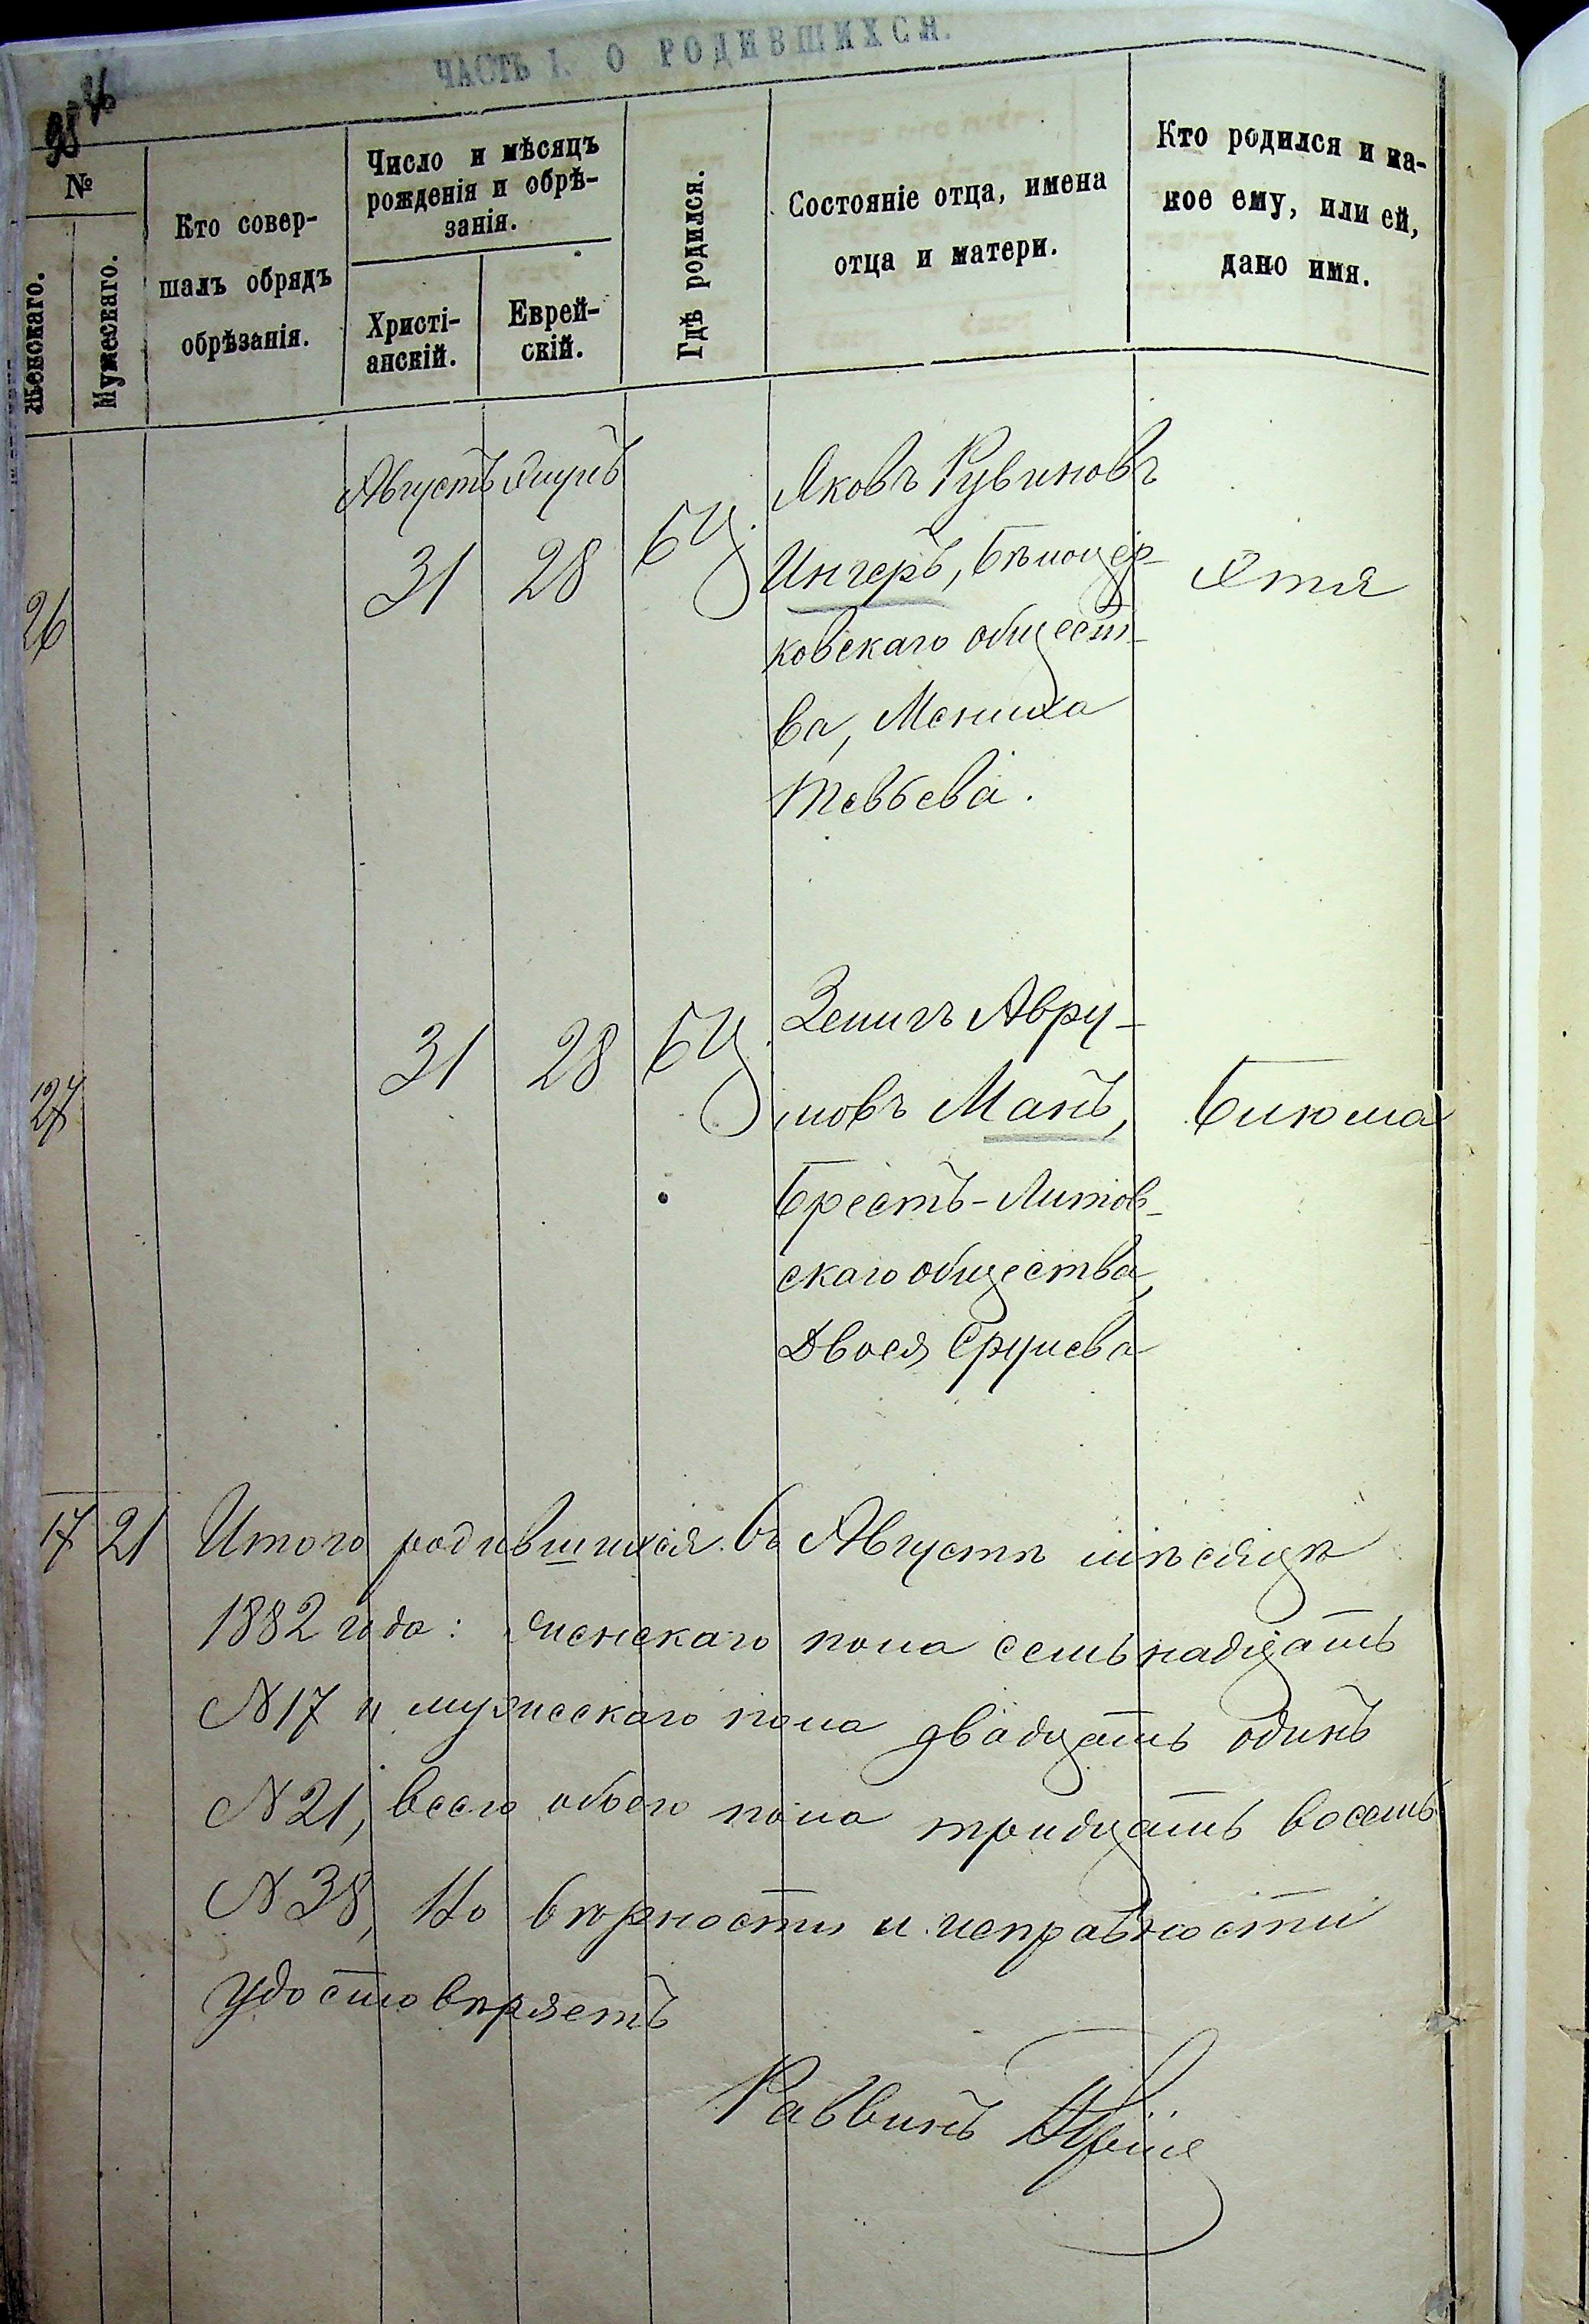 ЧАСТЬ I. О РОДИВШИХСЯ.
98
№
Женскаго.
Мужескаго.
Кто совер-
шалъ обрядъ
обрѣзанія.
Число и мѣсяцъ
рожденія и обрѣ-
занія.
Христі-
анскій.
Еврей-
скій.
Гдѣ родился.
Состояніе отца, имена
отца и матери.
Кто родился и ка-
кое ему, или ей,
дано имя.
Августъ Элулъ
26 31 28 БЦ.
Яковъ Рувиновъ
Ингеръ, Бѣлоцер-
ковскаго общест-
ва, Мениха
Тевьева.
Этля
27 31 28 БЦ.
Зелигъ Авру-
мовъ Манъ,
Брестъ-Литов-
скаго общества,
Двося Срулева
Блюма
17 21 Итого родившихся въ Августѣ мѣсяцѣ
1882 года: женскаго пола семьнадцать
N 17 и мужескаго пола двадцать одинъ
N 21, всего обоего пола тридцать восемь
N 38, Но вѣрности и исправности
удостовѣряетъ
Раввинъ